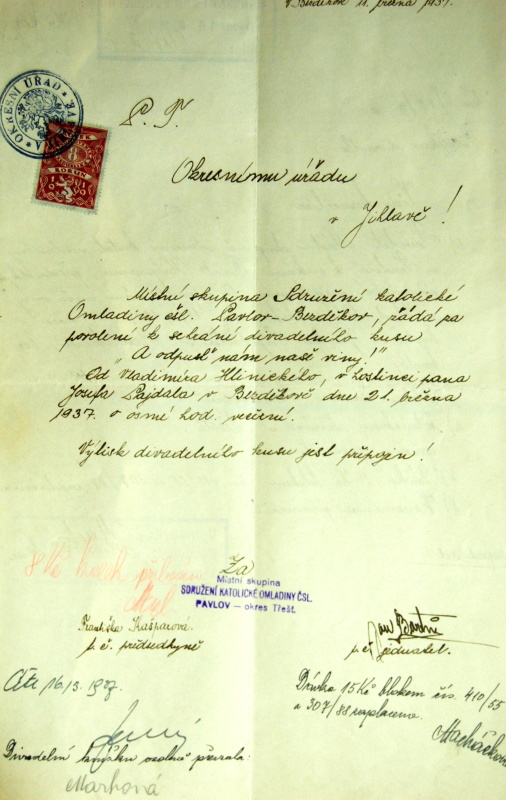 11. března 1937.
OKRESNÍ ÚŘAD
8
KORUN
P. T.
Okresnímu úřadu
v Jihlavě!
Místní skupina Sdružení katolické
Omladiny čsl. Pavlov-Bezděkov, žádá za
povolení k sehrání divadelního kusu
"A odpusť nám naše viny!"
Od Vladimíra Hlinického, v hostinci pana
Josefa Pajdala v Bezděkově dne 21. března
1937. o osmé hod. večerní.
Výtisk divadelního kusu jest připojen!
8 Kč
Za
Místní skupina
SDRUŽENÍ KATOLICKÉ OMLADINY ČSL.
PAVLOV — okres Třešť.
Františka Kašparová.
p. č. předsedkyně
Jan
p. č. jednatel.
16/3. 1937.
Dávka 15 Kč blokem čís. 410/55
a 307/88 zaplacena.
Divadelní knížku osobně převzala:
Marhoná